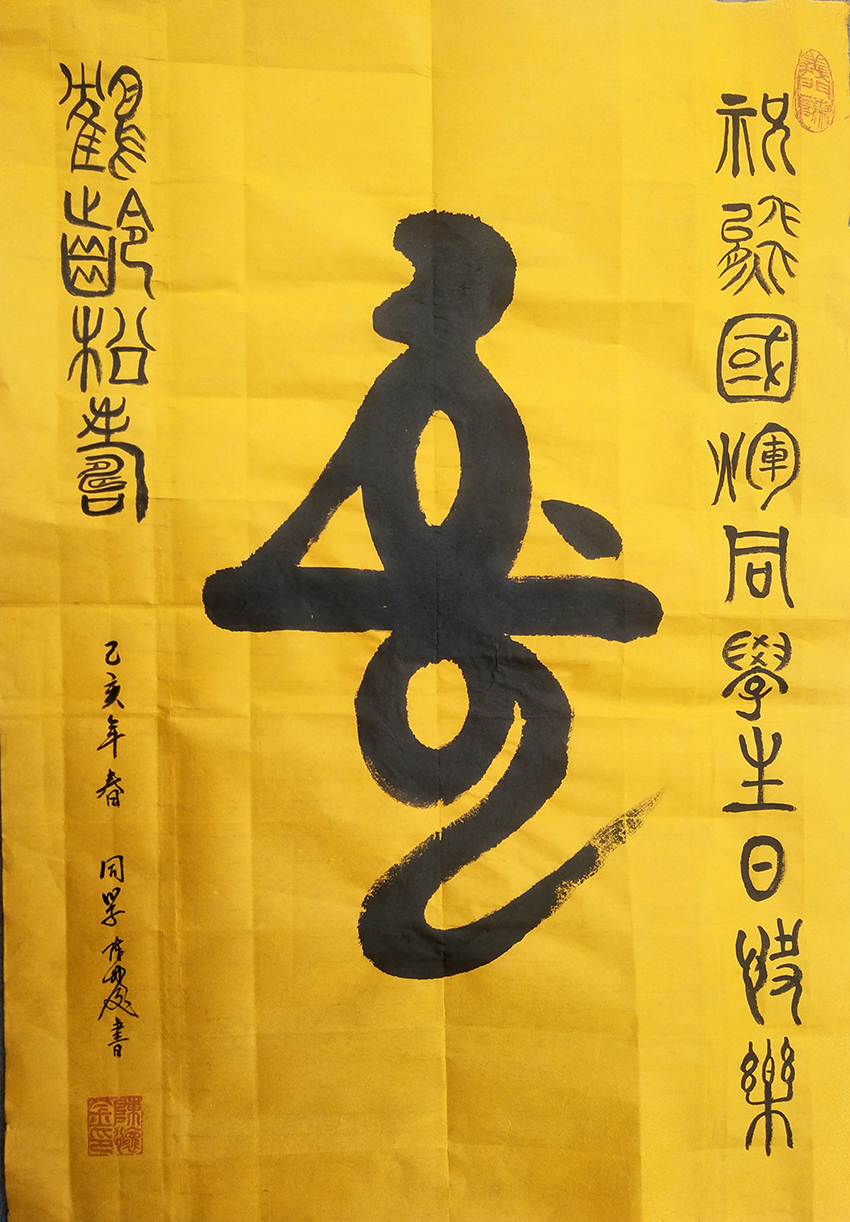 祝國煇同學生日快樂
壽
鶴齡松壽
乙亥年春 同學書